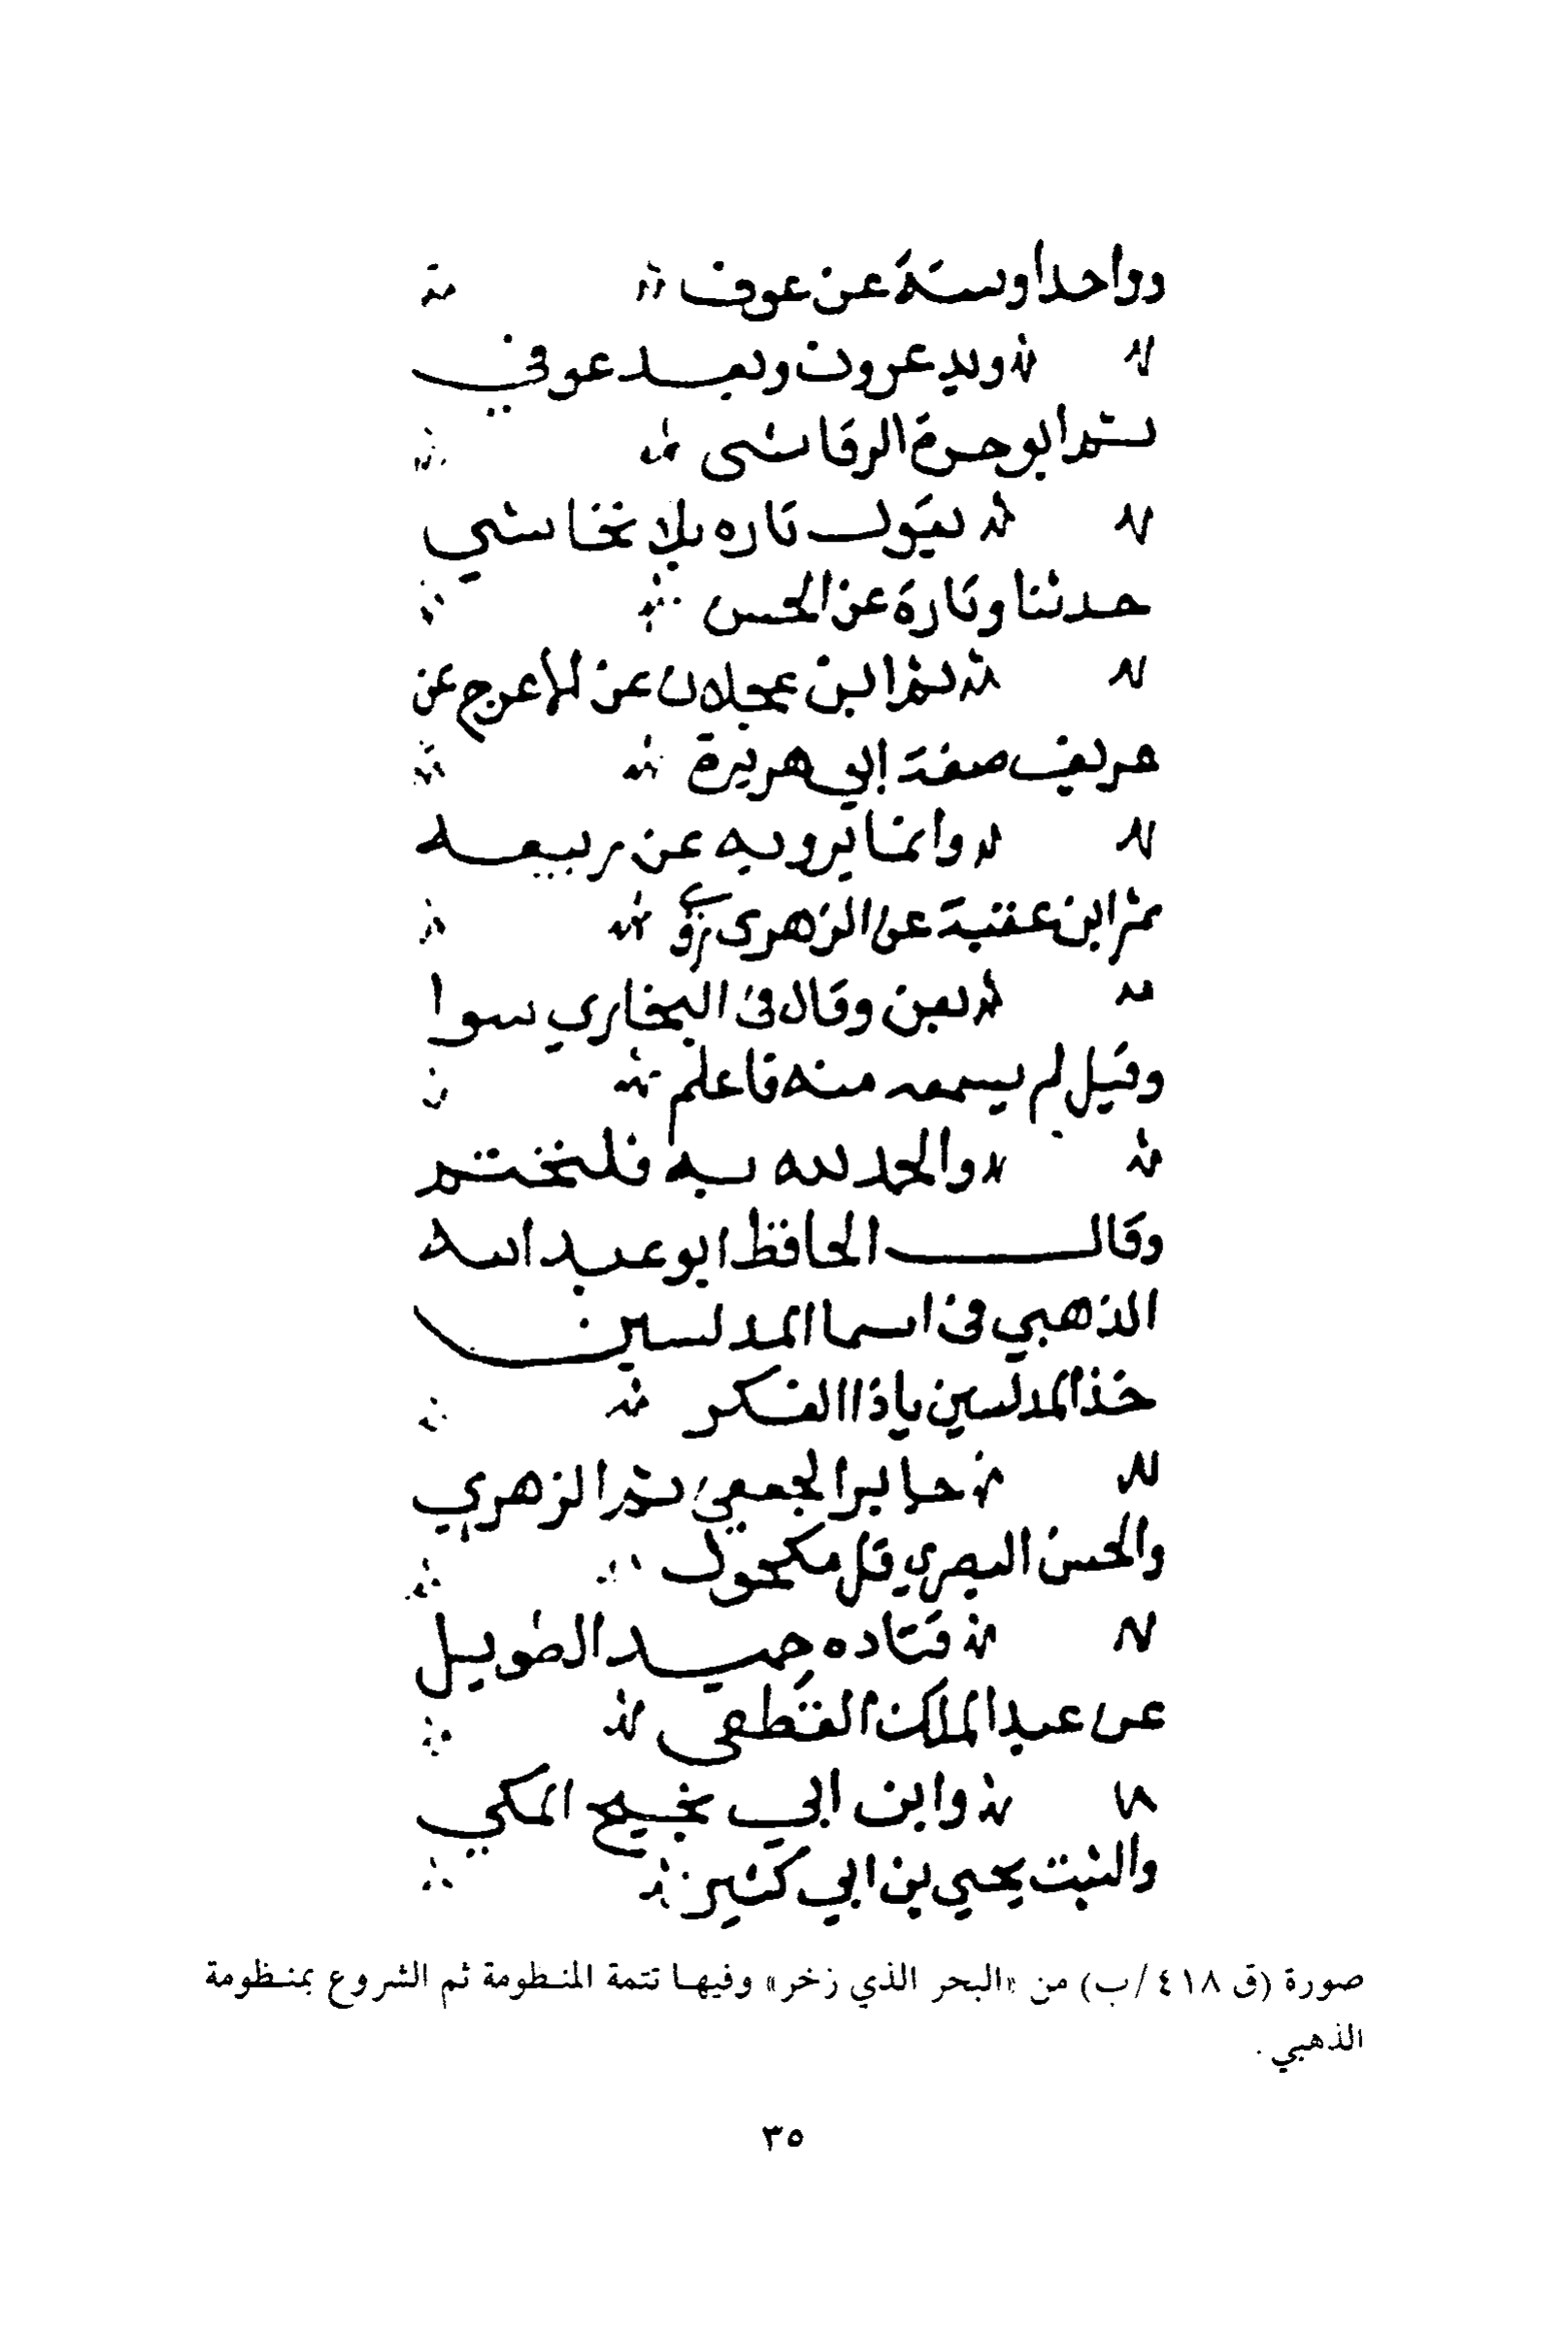 وواحدا وستة عن عوف
وبد عرون وبعد عوفي
ثم ابو حرة الرقاشي
يقول تاره بلا تخاشي
حدثنا وتارة عن الحسن
ثم ابن عجلان عن الاعرج عن
صفة ابي هريرة
وانما يرويه عن ربيعه
ثم ابن عقبة عن الزهري روي
بعن وقال في البخاري سوا
وقيل لم يسمعه منه فاعلم
والحمد لله به فلنختتم
وقال الحافظ ابو عبد الله
الذهبي في اسما المدلسين
خذ المدلسين ياذا الفكر
جابر الجعفي ثم الزهري
والحسن البصري قل مكحول
قتاده حميد الطويل
عن عبد الملك القطفي
وابن ابي نجيح المكي
والثبت يحيي بن ابي كثير
صورة (ق ٤١٨/ب) من «البحر الذي زخر» وفيها تتمة المنظومة ثم الشروع بمنظومة
الذهبي .
٣٥